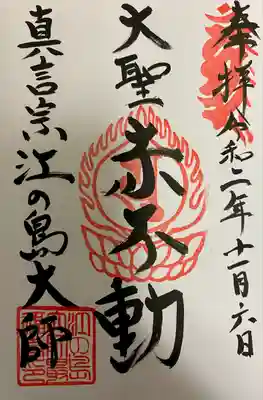 奉拝令和二年十一月六日
大聖赤不動
真言宗江の島大師